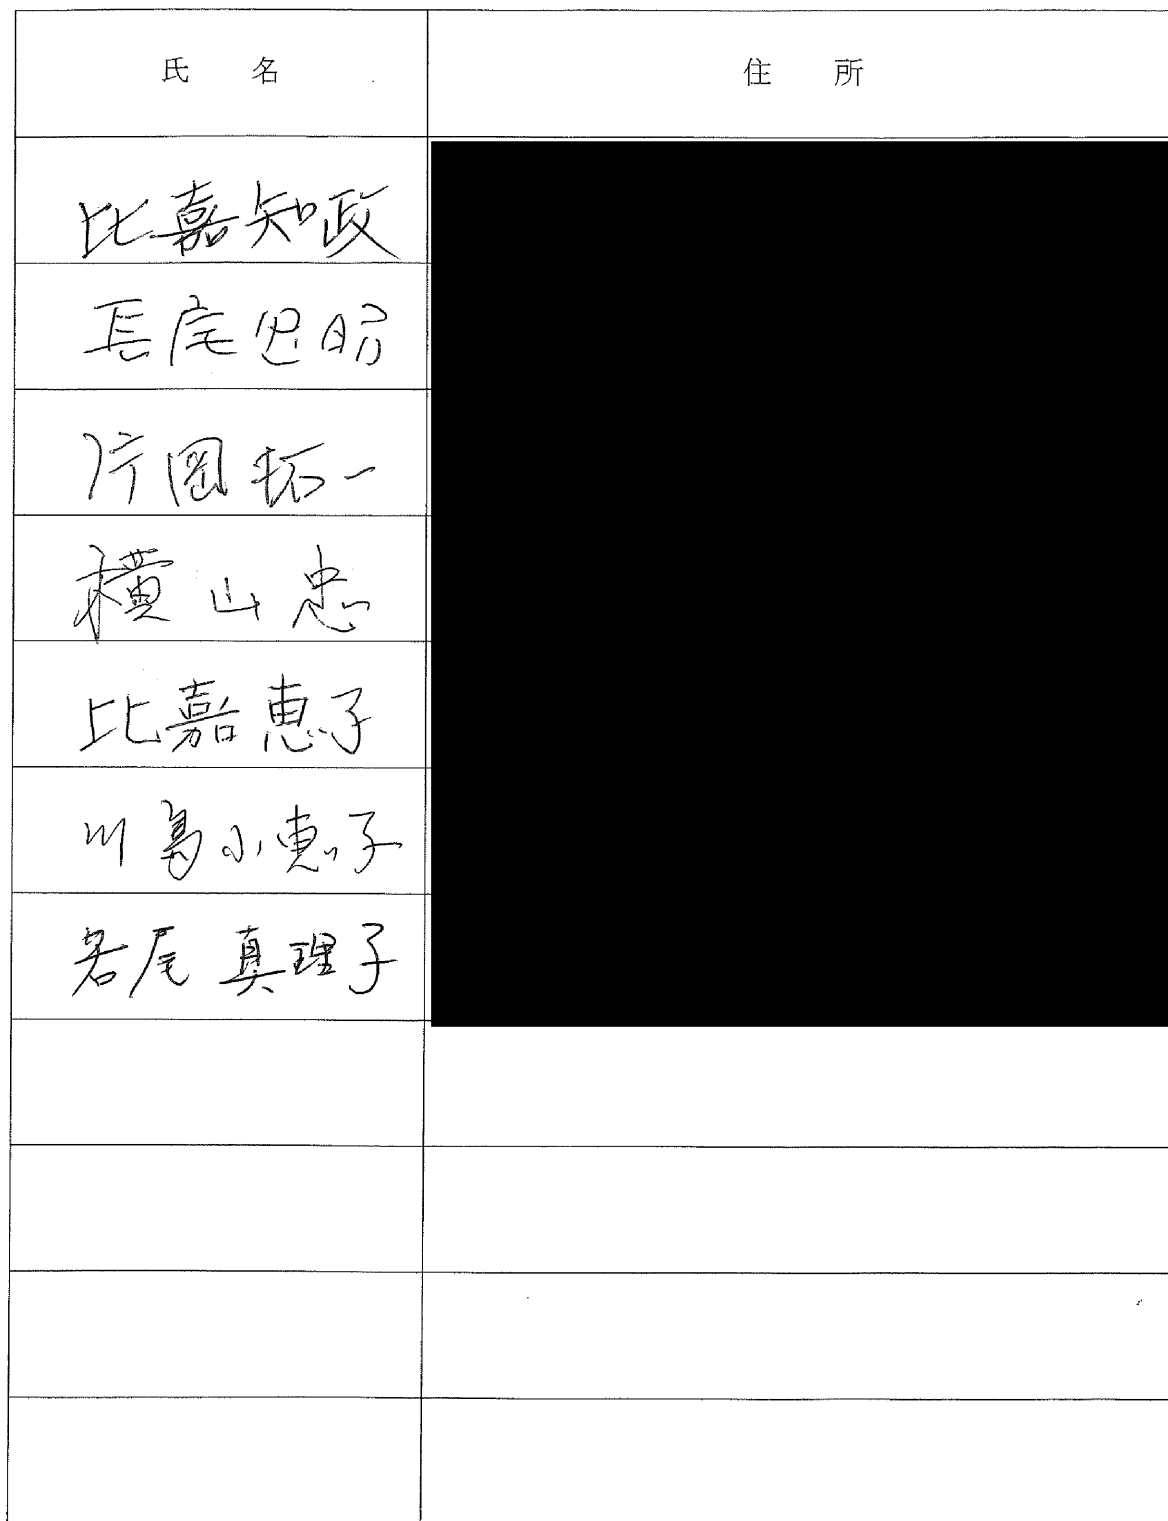 氏 名 住 所
比嘉知政
長尾忠昭
片岡拓一
横山忠
比嘉恵子
川島小恵子
若尾真理子